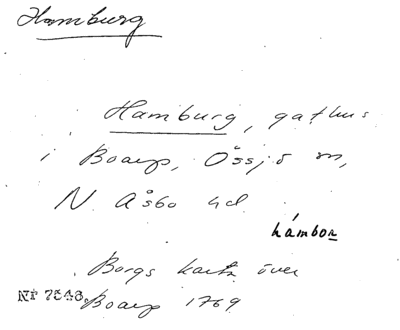 Hamburg
Hamburg, gathus
i Boarp, Össjö sn,
N. Åsbo hd
hámbor
Borgs karta över
Nr 7548. Boarp 1769